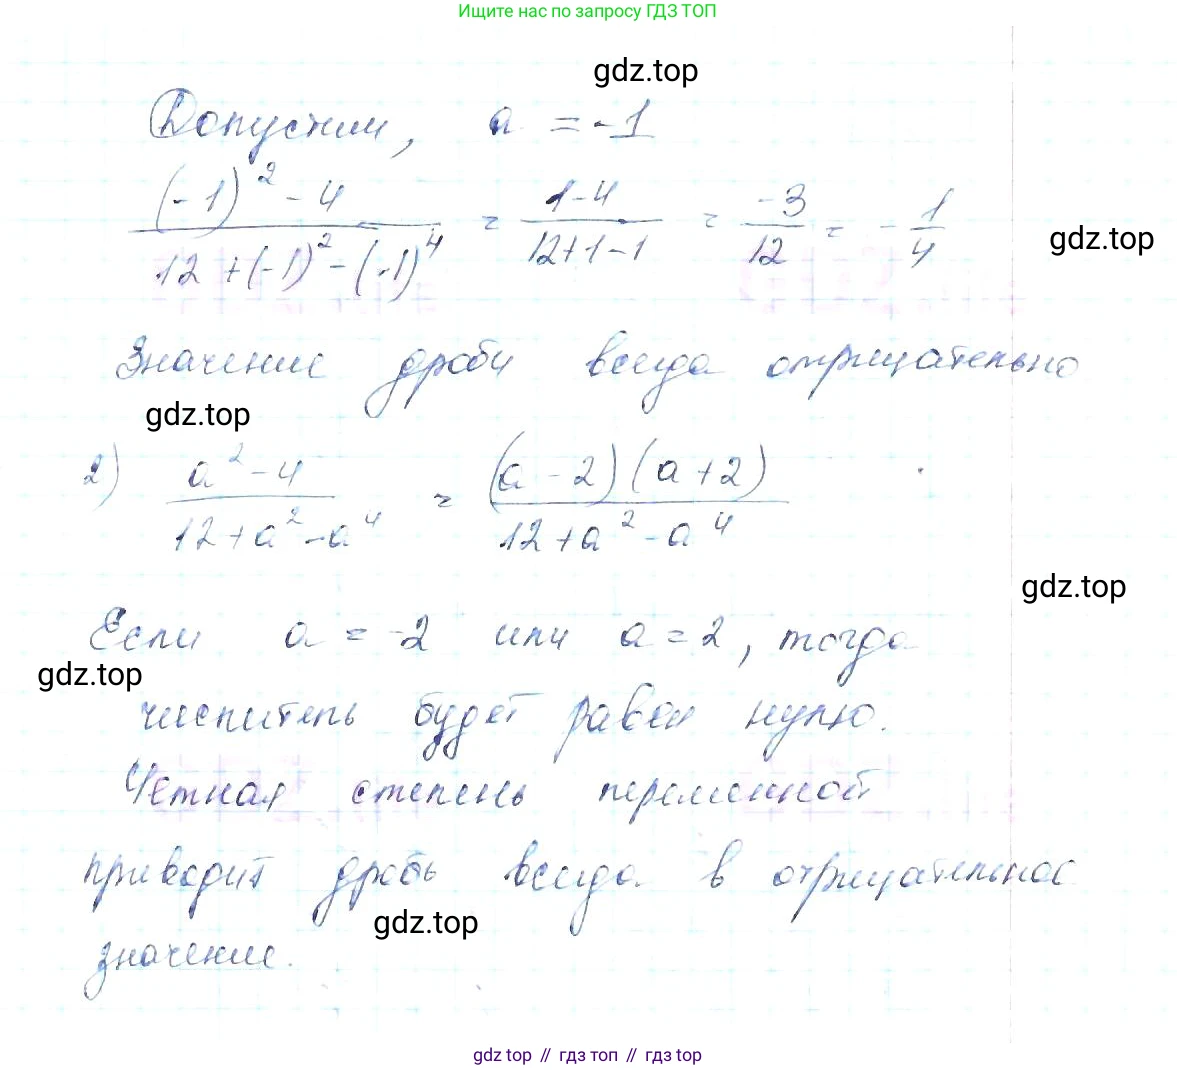 Ищите нас по запросу ГДЗ ТОП
gdz.top
Допустим, a = -1
((-1)^2 - 4)/(12 + (-1)^2 - (-1)^4) = (1-4)/(12+1-1) = -3/12 = -1/4
gdz.top
Значение дроби всегда отрицательно
gdz.top
2) (a^2 - 4)/(12 + a^2 - a^4) = ((a - 2)(a + 2))/(12 + a^2 - a^4)
gdz.top
Если a = -2 или a = 2, тогда
gdz.top
числитель будет равен нулю.
Четная степень переменной
приводит дробь всегда в отрицательное
gdz.top
значение.
gdz top // гдз топ // gdz top